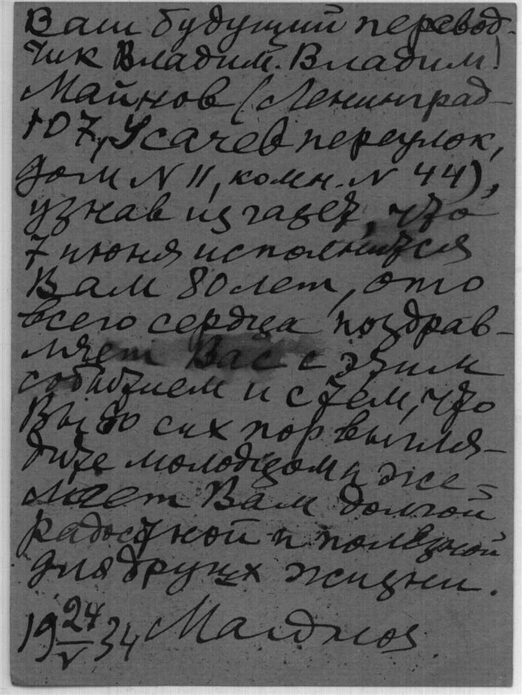 Ваш будущий перевод-
чик Владим. Владим.
Майнов (Ленинград-
107, Усачев переулок,
дом N 11, комн. N 44),
узнав из газет, что
7 июня исполнится
Вам 80 лет, ото
всего сердца поздрав-
ляет Вас с этим
событием и с тем, что
Вы до сих пор выгля-
дите молодцом и же-
лает Вам долгой
радостной и полезной
для других жизни.
19 24/V 34 Майнов